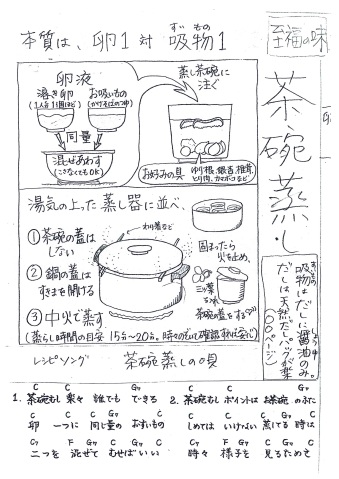 至福の味
茶碗蒸し
すいもの
本質は、卵1 対 吸物1
卵液
溶き卵
お吸いもの
(1人分
同量
混ぜあわす
(こさなくてもOK)
蒸し茶碗に
注ぐ
お好みの具
ゆり根、銀杏、椎茸、
とり肉、カマボコなど
湯気の上った蒸し器に並べ、
①茶碗の蓋は
しない
②鍋の蓋は
すきまを開ける
③中火で蒸す
(蒸らし時間の目安 15分〜20分。時々のぞいて確認すれば安心)
わり箸など
固まったら
火を止め、
三ッ葉
茶碗の蓋をする
吸物はだしに醤油のみ。
だしは天然だしパックが楽
レシピソング 茶碗蒸しの唄
C C G7 C
1. 茶碗むし 楽々 誰でも できる
C C C G7 C
卵 一つに 同じ量の おすいもの
C7 F G7 C C
二つを 混ぜて むせばいい
C C G7
2. 茶碗むし ポイントは お茶碗 のふた
C C C G7 C
しめては いけない 蒸してる 時は
C7 F G7 C C
時々 様子を 見るためで